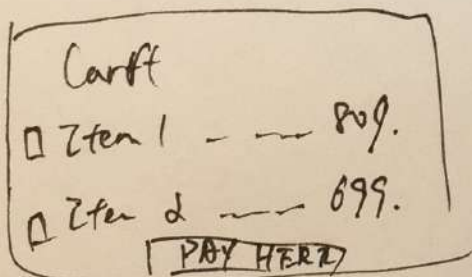 Carft
Item 1 - - - 809.
Item 2 - - - 699.
PAY HERE